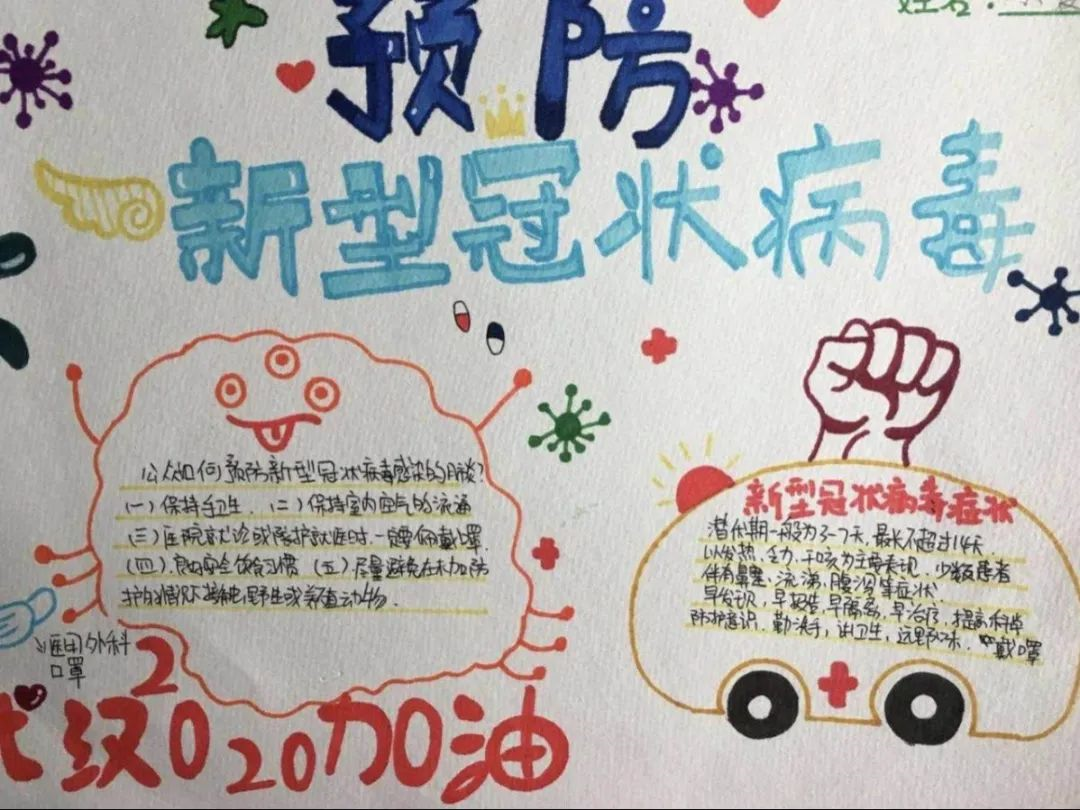 姓名：
预防
新型冠状病毒
公众如何预防新型冠状病毒感染的肺炎？
(一)保持手卫生．(二)保持室内空气的流通
(三)医院就诊或陪护就医时．一定要佩戴口罩．
(四)．良好安全饮食习惯 (五)．尽量避免在未加防
护的情况下接触野生或养殖动物．
新型冠状病毒症状
潜伏期一般为3-7天．最长不超过14天．
以发热、乏力、干咳为主要表现．少数患者
伴有鼻塞．流涕．腹泻等症状．
早发现．早报告．早隔离．早治疗．提高科学
防护意识．勤洗手，讲卫生，远野味．戴口罩
医用外科
口罩
2020加油